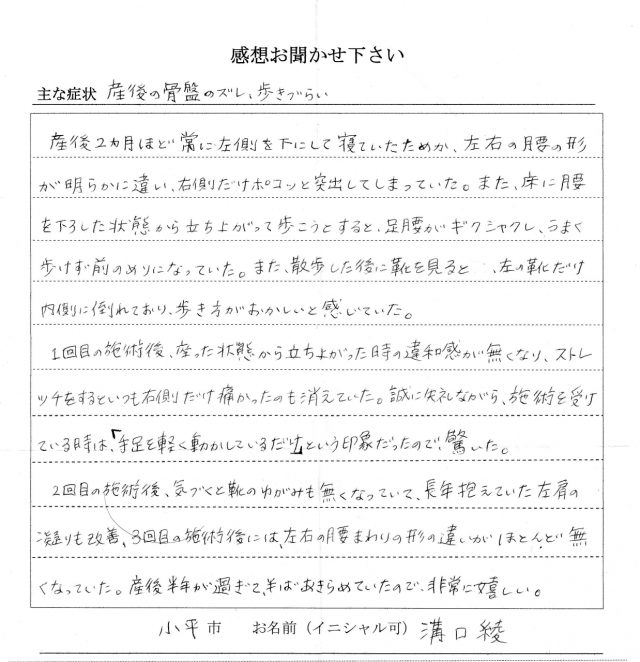 感想お聞かせ下さい
主な症状 産後の骨盤のズレ、歩きづらい
産後2カ月ほど常に左側を下にして寝ていたためか、左右の腰の形
が明らかに違い、右側だけポコッと突出してしまっていた。また、床に腰
を下ろした状態から立ち上がって歩こうとすると、足腰がギクシャクし、うまく
歩けず前のめりになっていた。また、散歩した後に靴を見ると、左の靴だけ
内側に倒れており、歩き方がおかしいと感じていた。
1回目の施術後、座った状態から立ち上がった時の違和感が無くなり、ストレ
ッチをするといつも右側だけ痛かったのも消えていた。誠に失礼ながら、施術を受け
ている時は、「手足を軽く動かしているだけ」という印象だったので、驚いた。
2回目の施術後、気づくと靴のゆがみも無くなっていて、長年抱えていた左肩の
凝りも改善、3回目の施術後には、左右の腰まわりの形の違いがほとんど無
くなっていた。産後半年が過ぎて、半ばあきらめていたので、非常に嬉しい。
小平市 お名前(イニシャル可) 溝口綾